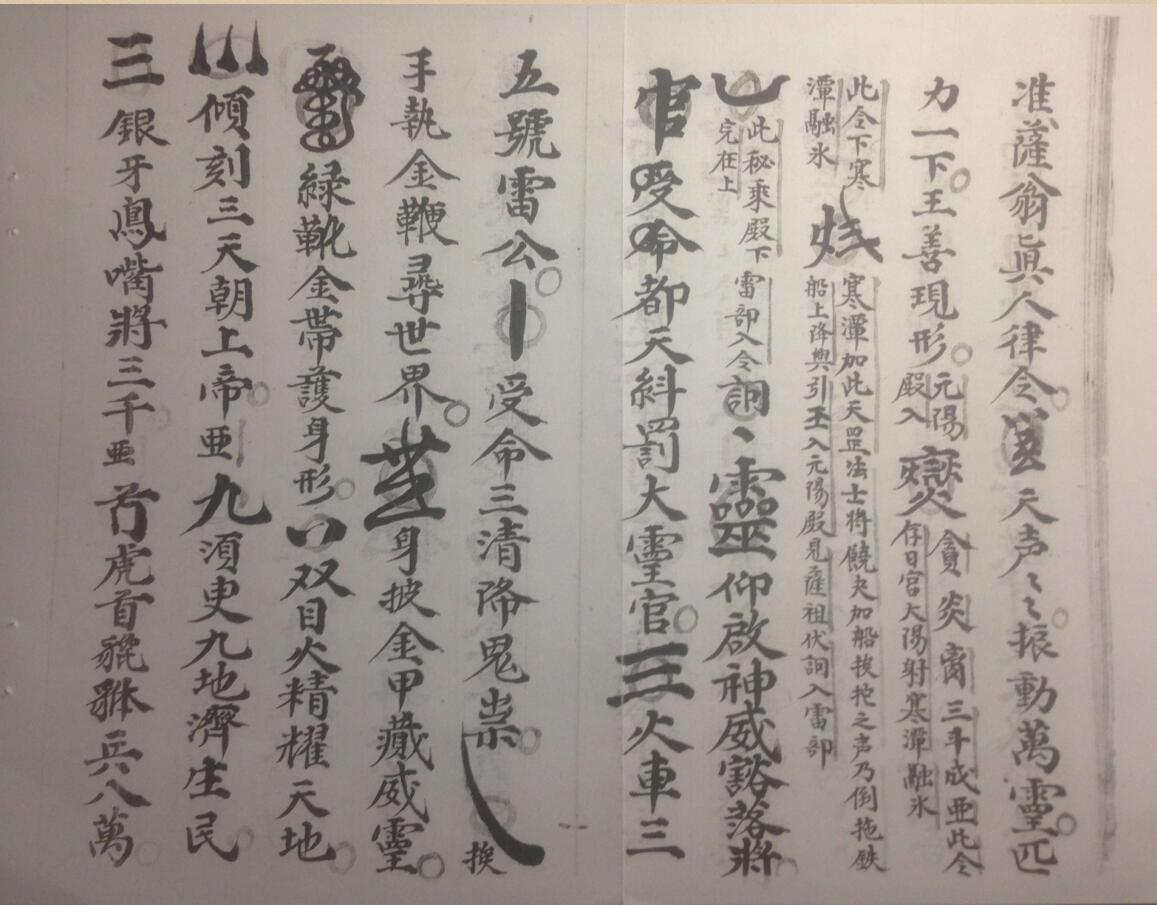 准薩翁眞人律令天声々振動萬霊匹
力一下王善現形元陽殿入貪炎南三斗成亜此令存日宮大陽射寒潭融氷
此令下寒潭融氷寒潭加此天罡法士将饒夬加船挨拕之声乃倒拖鉄船上降與引至入元陽殿見薩祖伏詞入雷部
此秘乘殿下完在上雷部入令詞、靈仰啟神威豁落將
受命都天糾罰大霊官三火車三
五號雷公受命三清降鬼祟挨
手執金鞭尋世界身披金甲藏威靈
緑靴金帶護身形双目火精耀天地
傾刻三天朝上帝亜九須叓九地濟生民
三銀牙鳥嘴將三千亜虎首貔貅兵八萬